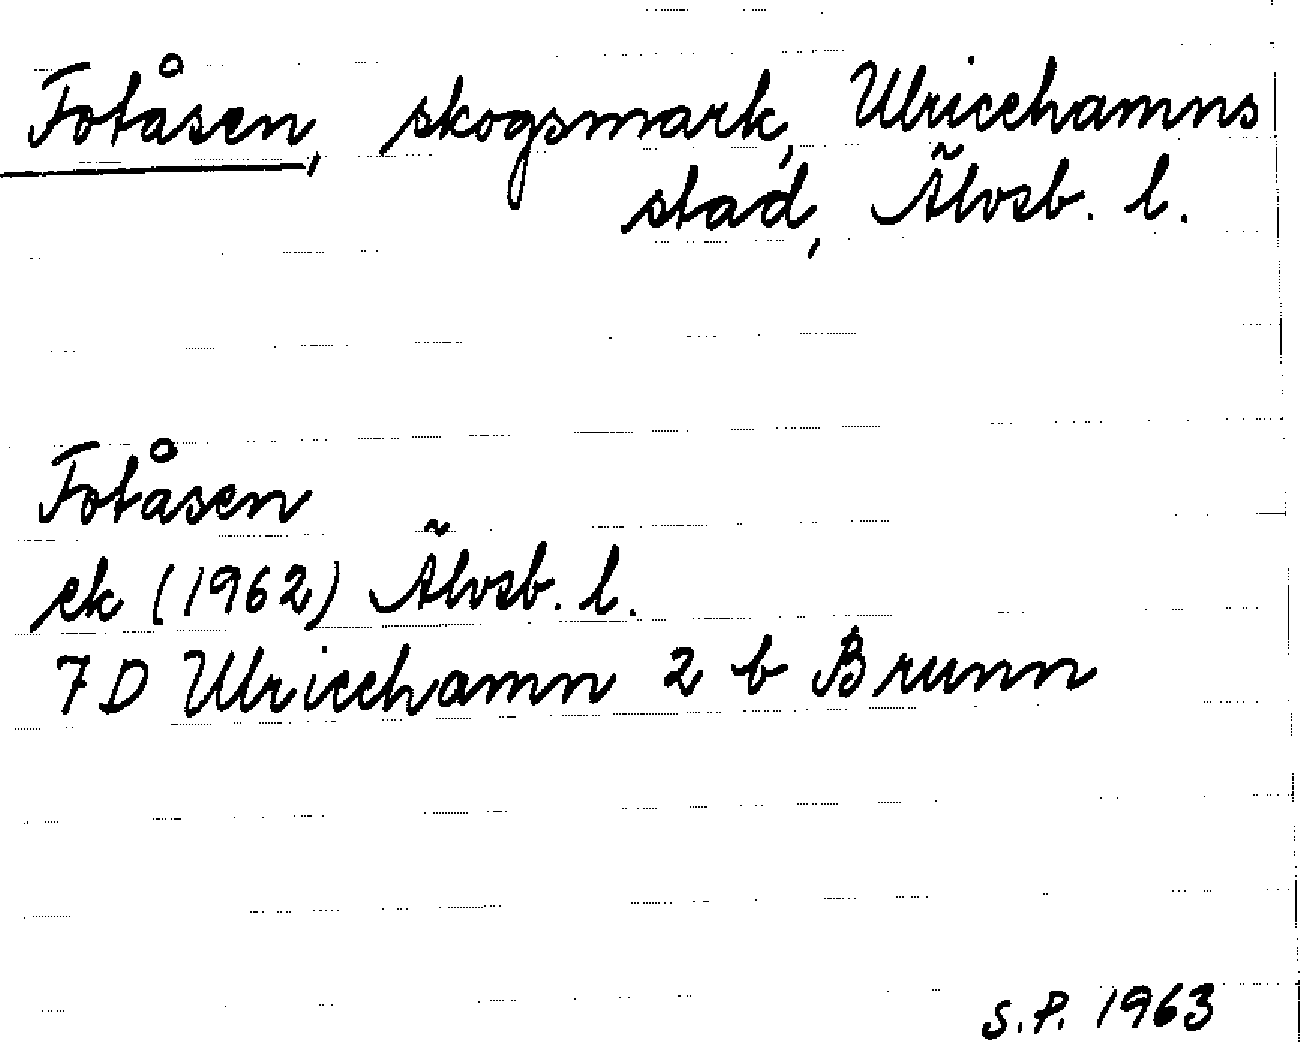 Fotåsen, skogsmark, Ulricehamns
stad, Älvsb. l.
Fotåsen
ek (1962) Älvsb. l.
7 D Ulricehamn 2 b Brunn
S.P. 1963